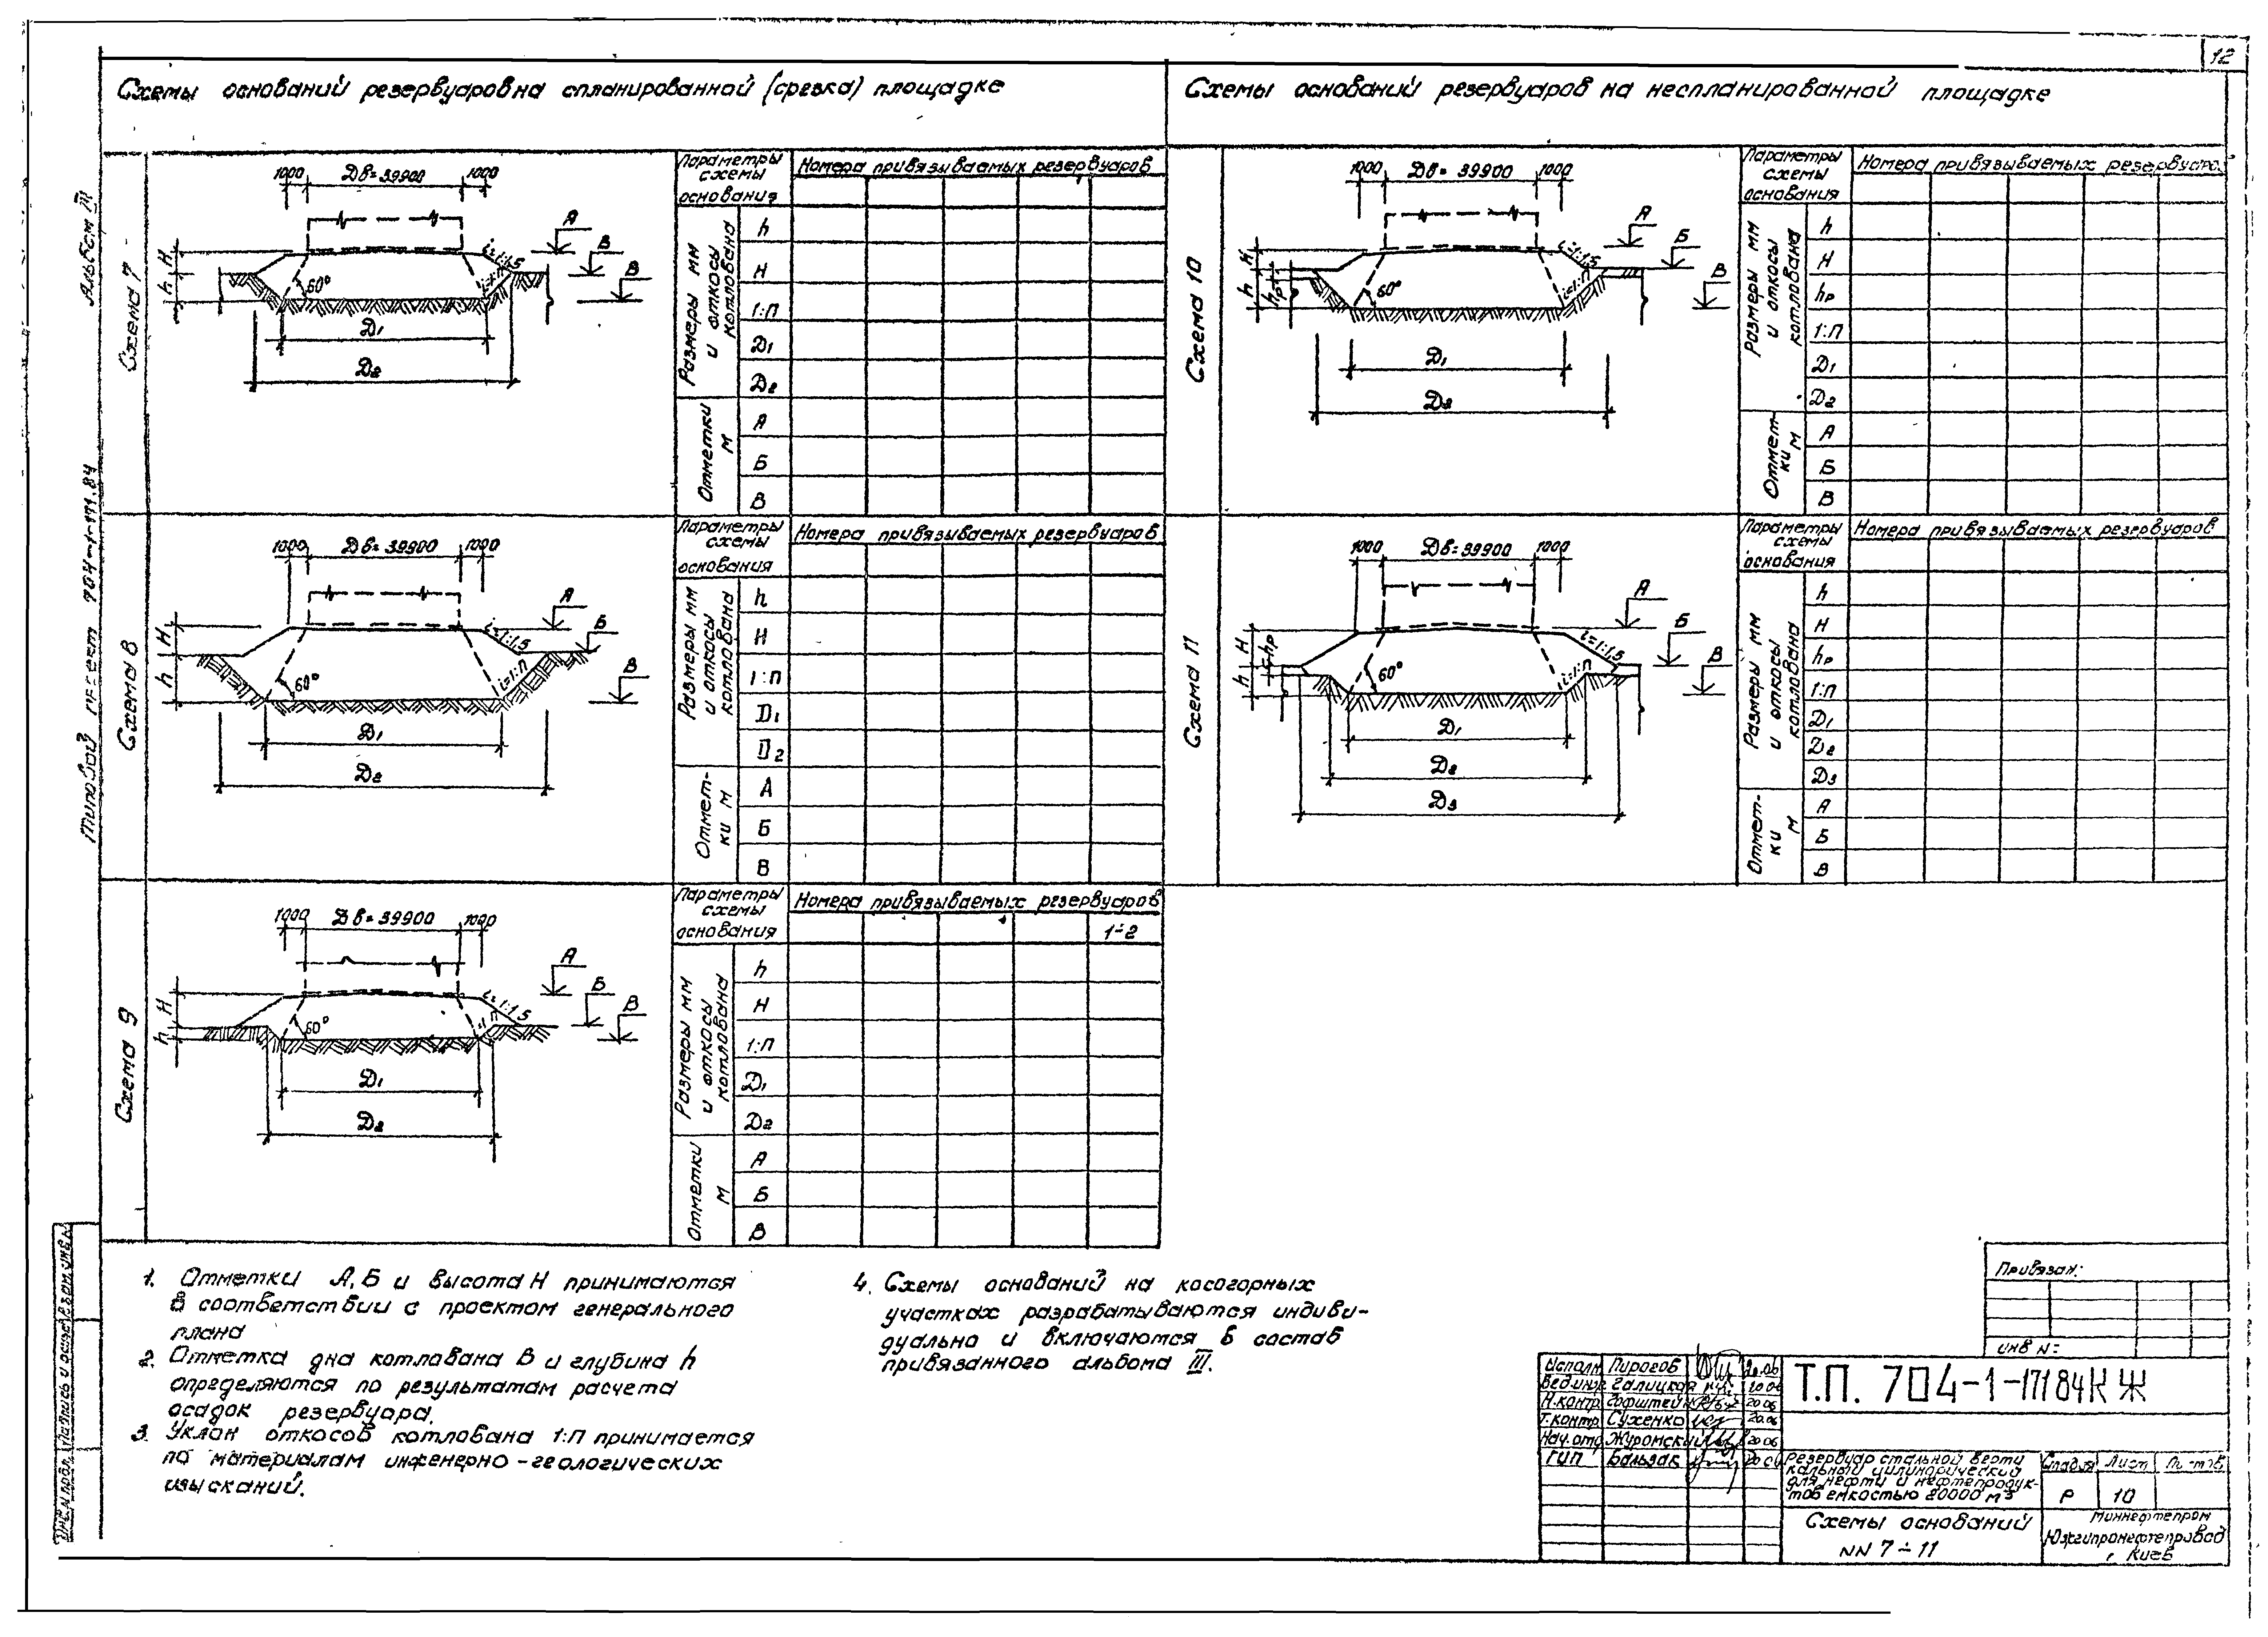 12
Схемы оснований резервуаров на спланированной (срезка) площадке
Схемы оснований резервуаров на неспланированной площадке
Альбом III
Типовой проект 704-1-171.84
Схема 7
1000 Дв=39900 1000
А
В
В
H
h
i=1:1,5
i=1:п
60°
Д1
Д2
Параметры схемы основания
Номера привязываемых резервуаров
Размеры мм и откосы котлована
h
H
1:п
Д1
Д2
Отметки м
А
Б
В
Схема 8
1000 Дв=39900 1000
А
Б
В
H
h
i=1:1,5
i=1:п
60°
Д1
Д2
Параметры схемы основания
Номера привязываемых резервуаров
Размеры мм и откосы котлована
h
H
1:п
D1
D2
Отметки м
А
Б
В
Схема 9
1000 Дв=39900 1000
А
Б
В
H
h
i=1:1,5
60°
Д1
Д2
Параметры схемы основания
Номера привязываемых резервуаров
1÷2
Размеры мм и откосы котлована
h
H
1:п
Д1
Д2
Отметки м
А
Б
В
Схема 10
1000 Дв=39900 1000
А
Б
В
H
h
hр
i=1:1,5
i=1:п
60°
Д1
Д2
Параметры схемы основания
Номера привязываемых резервуаро
Размеры мм и откосы котлована
h
H
hр
1:п
Д1
Д2
Отметки м
А
Б
В
Схема 11
1000 Дв=39900 1000
А
Б
В
H
hр
h
i=1:1,5
i=1:п
60°
Д1
Д2
Д3
Параметры схемы основания
Номера привязываемых резервуаров
Размеры мм и откосы котлована
h
H
hр
1:п
Д1
Д2
Д3
Отметки м
А
Б
В
1. Отметки А, Б и высота Н принимаются
в соответствии с проектом генерального
плана
2. Отметка дна котлована В и глубина h
определяются по результатам расчета
осадок резервуара.
3. Уклон откосов котлована 1:п принимается
по материалам инженерно-геологических
изысканий.
4. Схемы оснований на косогорных
участках разрабатываются индиви-
дуально и включаются в состав
привязанного альбома III.
Привязан:
инв №:
Исполн. Пирогов 20.06
Вед.инж. Галицкая 20.06
Н.контр. Гофштей 20.06
Т.контр. Сухенко 20.06
Нач.отд. Журомский 20.06
ГИП Бальзак 20.06
Т.П. 704-1-171 84 КЖ
Резервуар стальной верти
кальный цилиндрический
для нефти и нефтепродук-
тов емкостью 20000 м3
Стадия Лист Листов
Р 10
Схемы оснований
NN 7÷11
Миннефтепром
Южгипронефтепровод
г. Киев